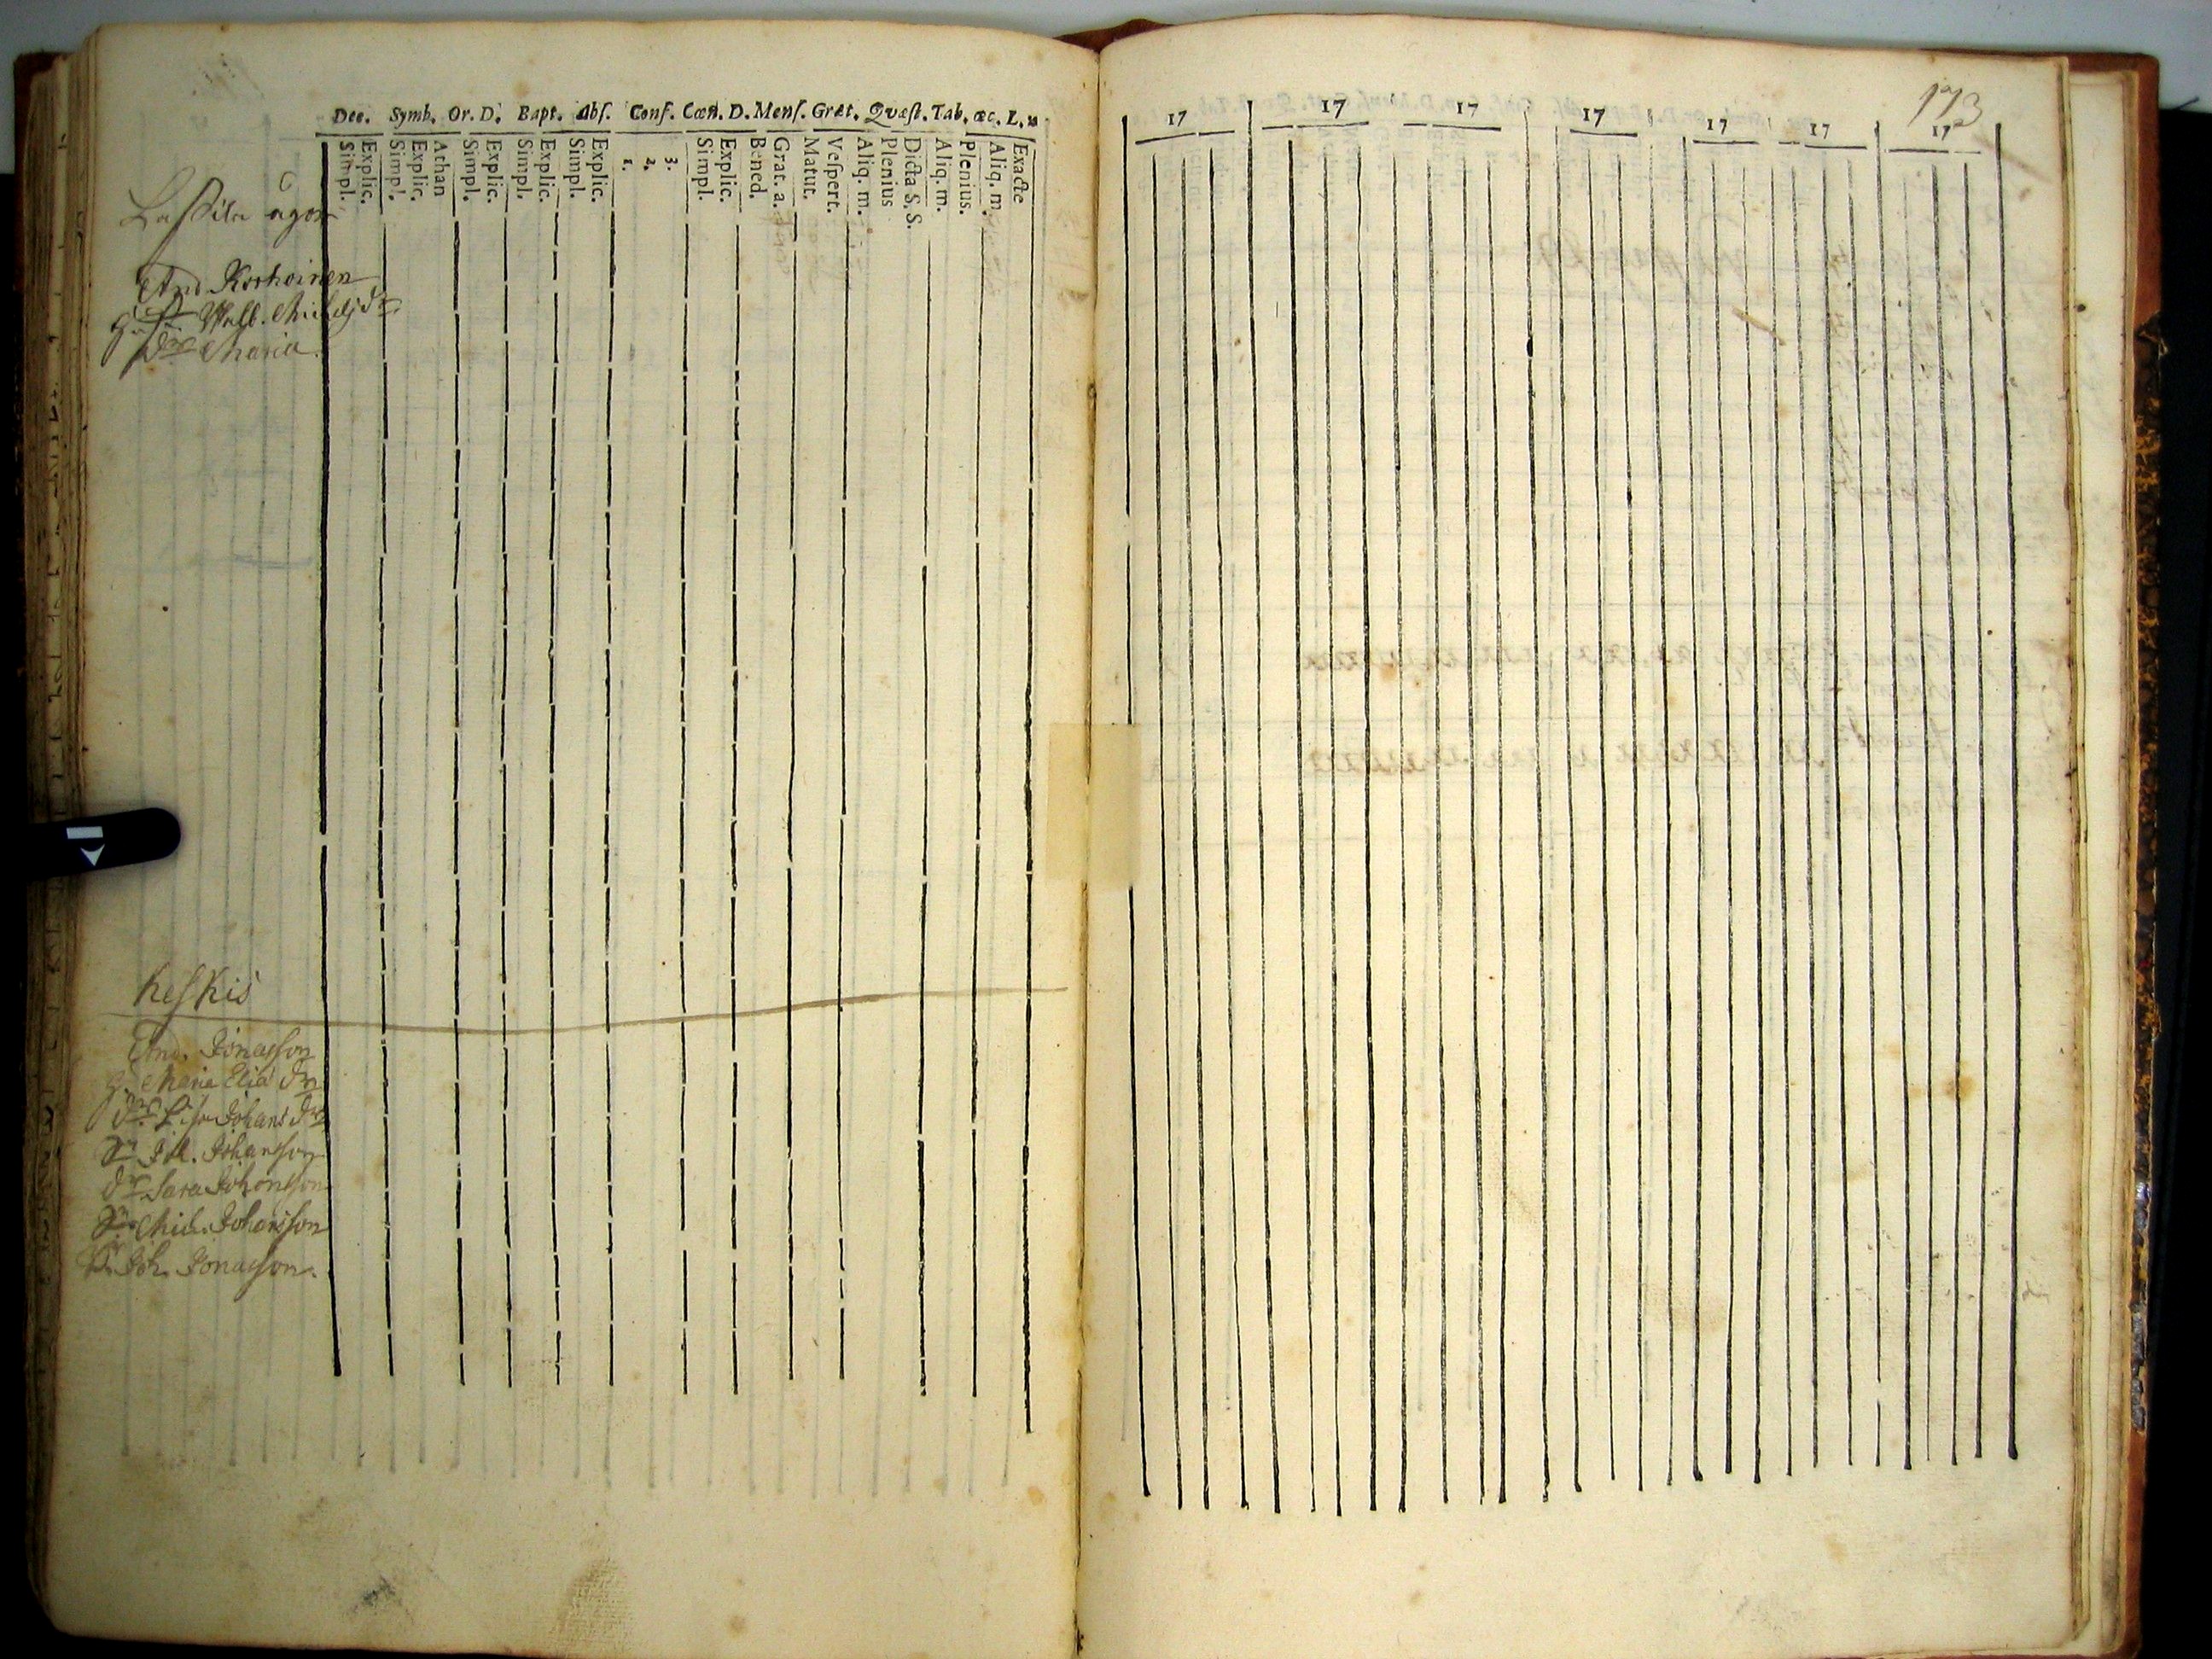 Dec. Symb. Or. D. Bapt. Abſ. Conf. Cœn. D. Menſ. Grat. Quæſt. Tab. œc. L.
Simpl. Explic. Simpl. Explic. Athan Simpl. Explic. Simpl. Explic. Simpl. Explic. 1. 2. 3. Simpl. Explic. Bened. Grat. a. Matut. Veſpert. Aliq. m. Plenius Dicta S. S. Aliq. m. Plenius. Aliq. m. Exacte
And. Korhoinen
Maria
Keſkis
And. Jonaſſon
H. Maria Eliæ Dr
Dr Liſa Johans Dr
Sn Joh. Johanſſon
Dr Sara Johonſſon
Sn Mich. Johanſſon
Joh. Jonaſſon.
173
17 17 17 17 17 17 17